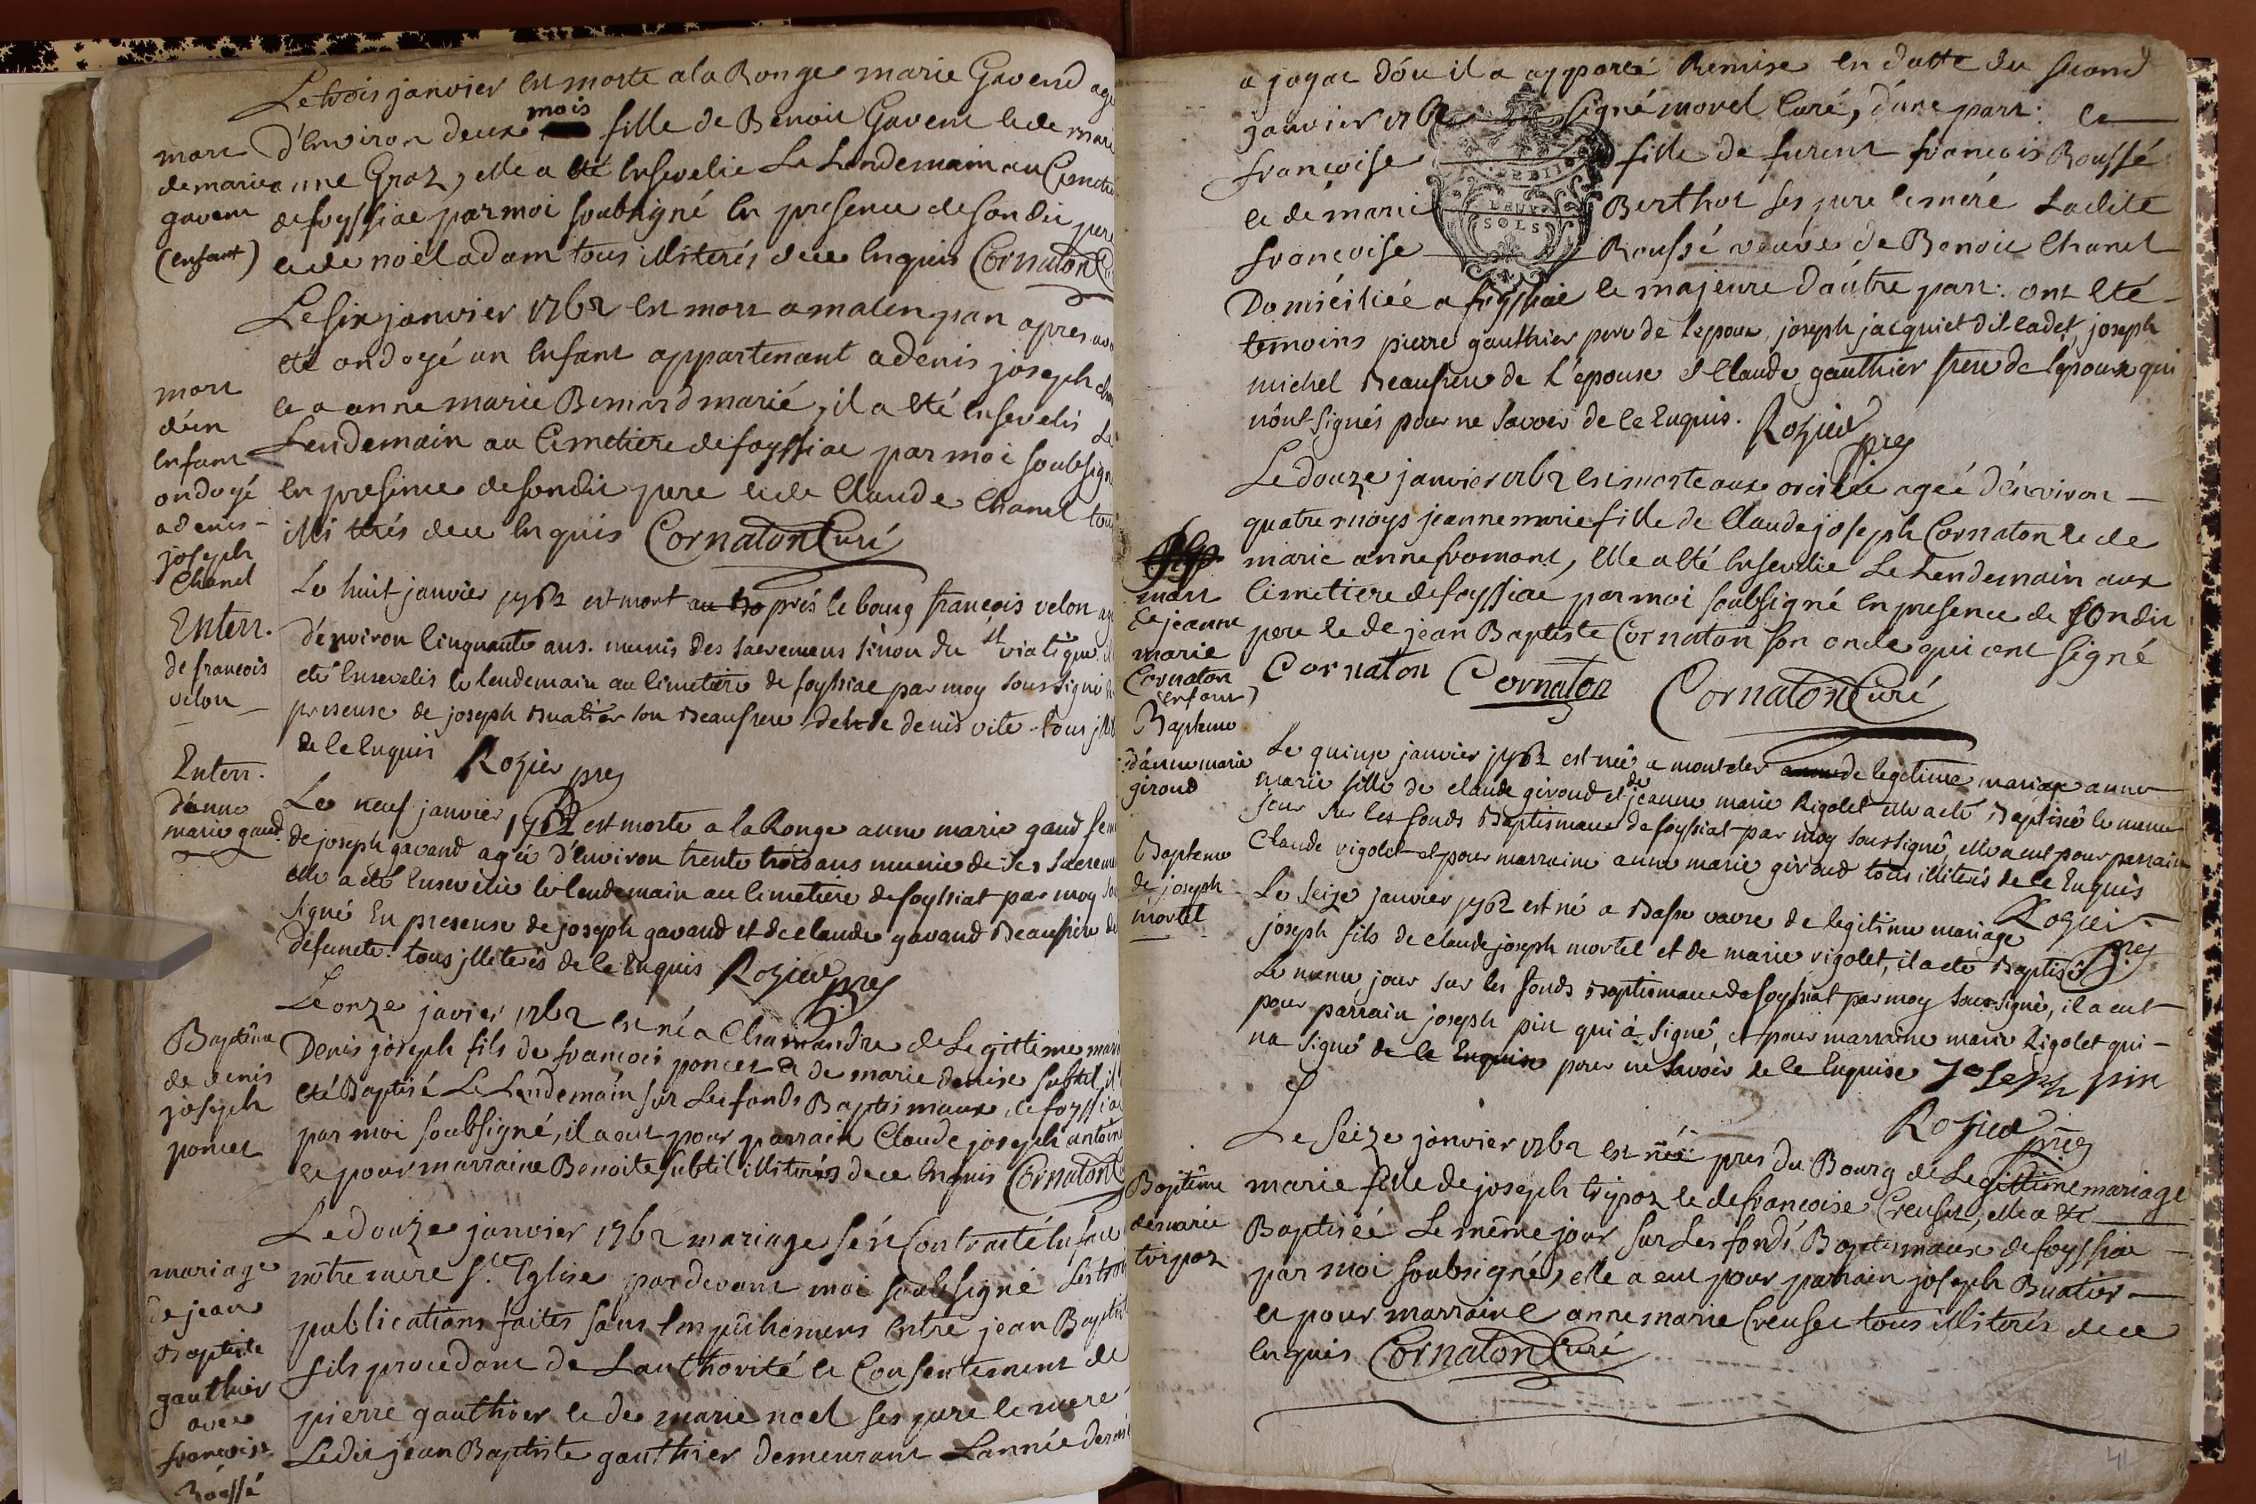 Le trois janvier est morte a la Ronge marie Gavend agé
mort
de marie
gavent
(enfant)
d'Environ deux mois fille de Benoit Gavent et de marie
anne Graz, elle a eté Ensevelie Le Lendemain au Cimetie
de foyssiac par moi soubsigné En presence de son dit pere
et de noël adam tous illiterés de ce Enquis Cornaton Cu
mort
d'un
Enfant
ondoyé
a denis
joseph
Chanel
Le six janvier 1762 est mort a malenpan apres avo
eté ondoyé un Enfant appartenant a denis joseph
et a anne marie Bernard marié, il a eté Ensevelis Le
Lendemain au Cimetiere de foyssiac par moi soubsigné
En presence de son dit pere et de Claude Chanel tous
illi terés de ce Enquis Cornaton Curé
Enterr.
de francois
velon
Le huit janvier 1762 est mort prés le bourg francois velon
d'environ Cinquante ans. munis des sacremens sinon du st viatique. il
eté Ensevelis le lendemain au Cimetiere de foyssiac par moy soussigné
presense de joseph Buatier son Beaufrere et de denis vite. tous
de ce Enquis Rozier pre
Enterr.
d'anne
marie gaud
Le neuf janvier 1762 est morte a la Ronge anne marie gaud fem
de joseph gavand ageé d'Environ trente trois ans munie de Ses sacremen
elle a eté Ensevelie le lendemain au Cimetiere de foyssiat par moy
signé En presense de joseph gavand et de claude gavand Beaufrere de
defuncte. tous jlliterés de ce Enquis Rozier pre
Baptême
de denis
joseph
poncet
Le onze javier 1762 est né a Charmandre de Legittime mari
Denis joseph fils de francois poncet & de marie denise subtil, il
eté Baptisé Le Lendemain sur Les fonds Baptismaux de foyssiac
par moi soubsigné, il a eut pour parrain Claude joseph antoine
et pour marraine Benoite subtil illiterés de ce Enquis Cornaton C
mariage
de jean
Baptiste
gauthier
avec
francoise
Roussé
Le douze janvier 1762 mariage s'ést Contracté En face
nôtre mere Ste Eglise par devant moi soubsigné Les trois
publications faites sans Empêchemens Entre jean Baptist
fils procedant de L'authorité et Consentement de
pierre gauthier et de marie noel ses pere et mere
Ledit jean Baptiste gauthier demeurant L'année dernie
a jayac d'óu il a apporté Remise En datte du second
janvier 1762 signé morel Curé, d'une part: et
francoise fille de furent francois Roussé
et de marie Berthot ses pere et mere Ladite
francoise Roussé veuve de Benoit Chanel
Domiciliée a foyssiac et majeure d'autre part: ont eté
temoins pierre gauthier pere de l'epoux joseph jacquiet dit Cadet, joseph
michel Beaufrere de l'epouse & Claude gauthier frere de l'epoux qui
n'ont signés pour ne savoir de ce Enquis. Rozier pre
DEUX
SOLS
mort
de jeanne
marie
Cornaton
(Enfant)
Le douze janvier 1762 est morte aux ageé d'énviron
quatre moys jeanne marie fille de Claude joseph Cornaton et de
marie anne fromont, Elle a eté Ensevelie Le Lendemain aux
Cimetiere de foyssiac par moi soubsigné En presence de son dit
pere et de jean Baptiste Cornaton son oncle qui ont signé
Cornaton Cornaton Cornaton Curé
Bapteme
d'anne marie
giroud
Le quinze janvier 1762 est née a montcler de legetime mariage anne
marie fille de claude giroud et de jeanne marie Rigolet elle a eté Baptiseé le meme
jour sur les fonds Baptismaux de foyssiat par moy soussigné, elle a eut pour parrain
Claude rigolet et pour marraine anne marie giroud tous illiterés de ce Enquis
Rozier pre
Bapteme
de joseph
mortel
Le seize janvier 1762 est né a Basse vavre de legitime mariage
joseph fils de claude joseph mortel et de marie rigolet, il a eté Baptisé
le meme jour sur les fonds Baptismaux de foyssiat par moy soussigné, il a eut
pour parrain joseph pin qui à signé, et pour marraine marie Rigolet qui
na signé de ce Enquise pour ne Savoir de ce Enquise Joseph pin
Rozier pre
Baptême
de marie
tripoz
Le seize janvier 1762 est née pres du Bourg de Legittime mariage
marie fille de joseph tripoz et de francoise Creuset, elle a eté
Baptiseé Le même jour sur Les fonds Baptismaux de foyssiac
par moi soubsigné, elle a eut pour parrain joseph Buatier
et pour marraine anne marie Creuset tous illiterés de ce
Enquis Cornaton Curé
41